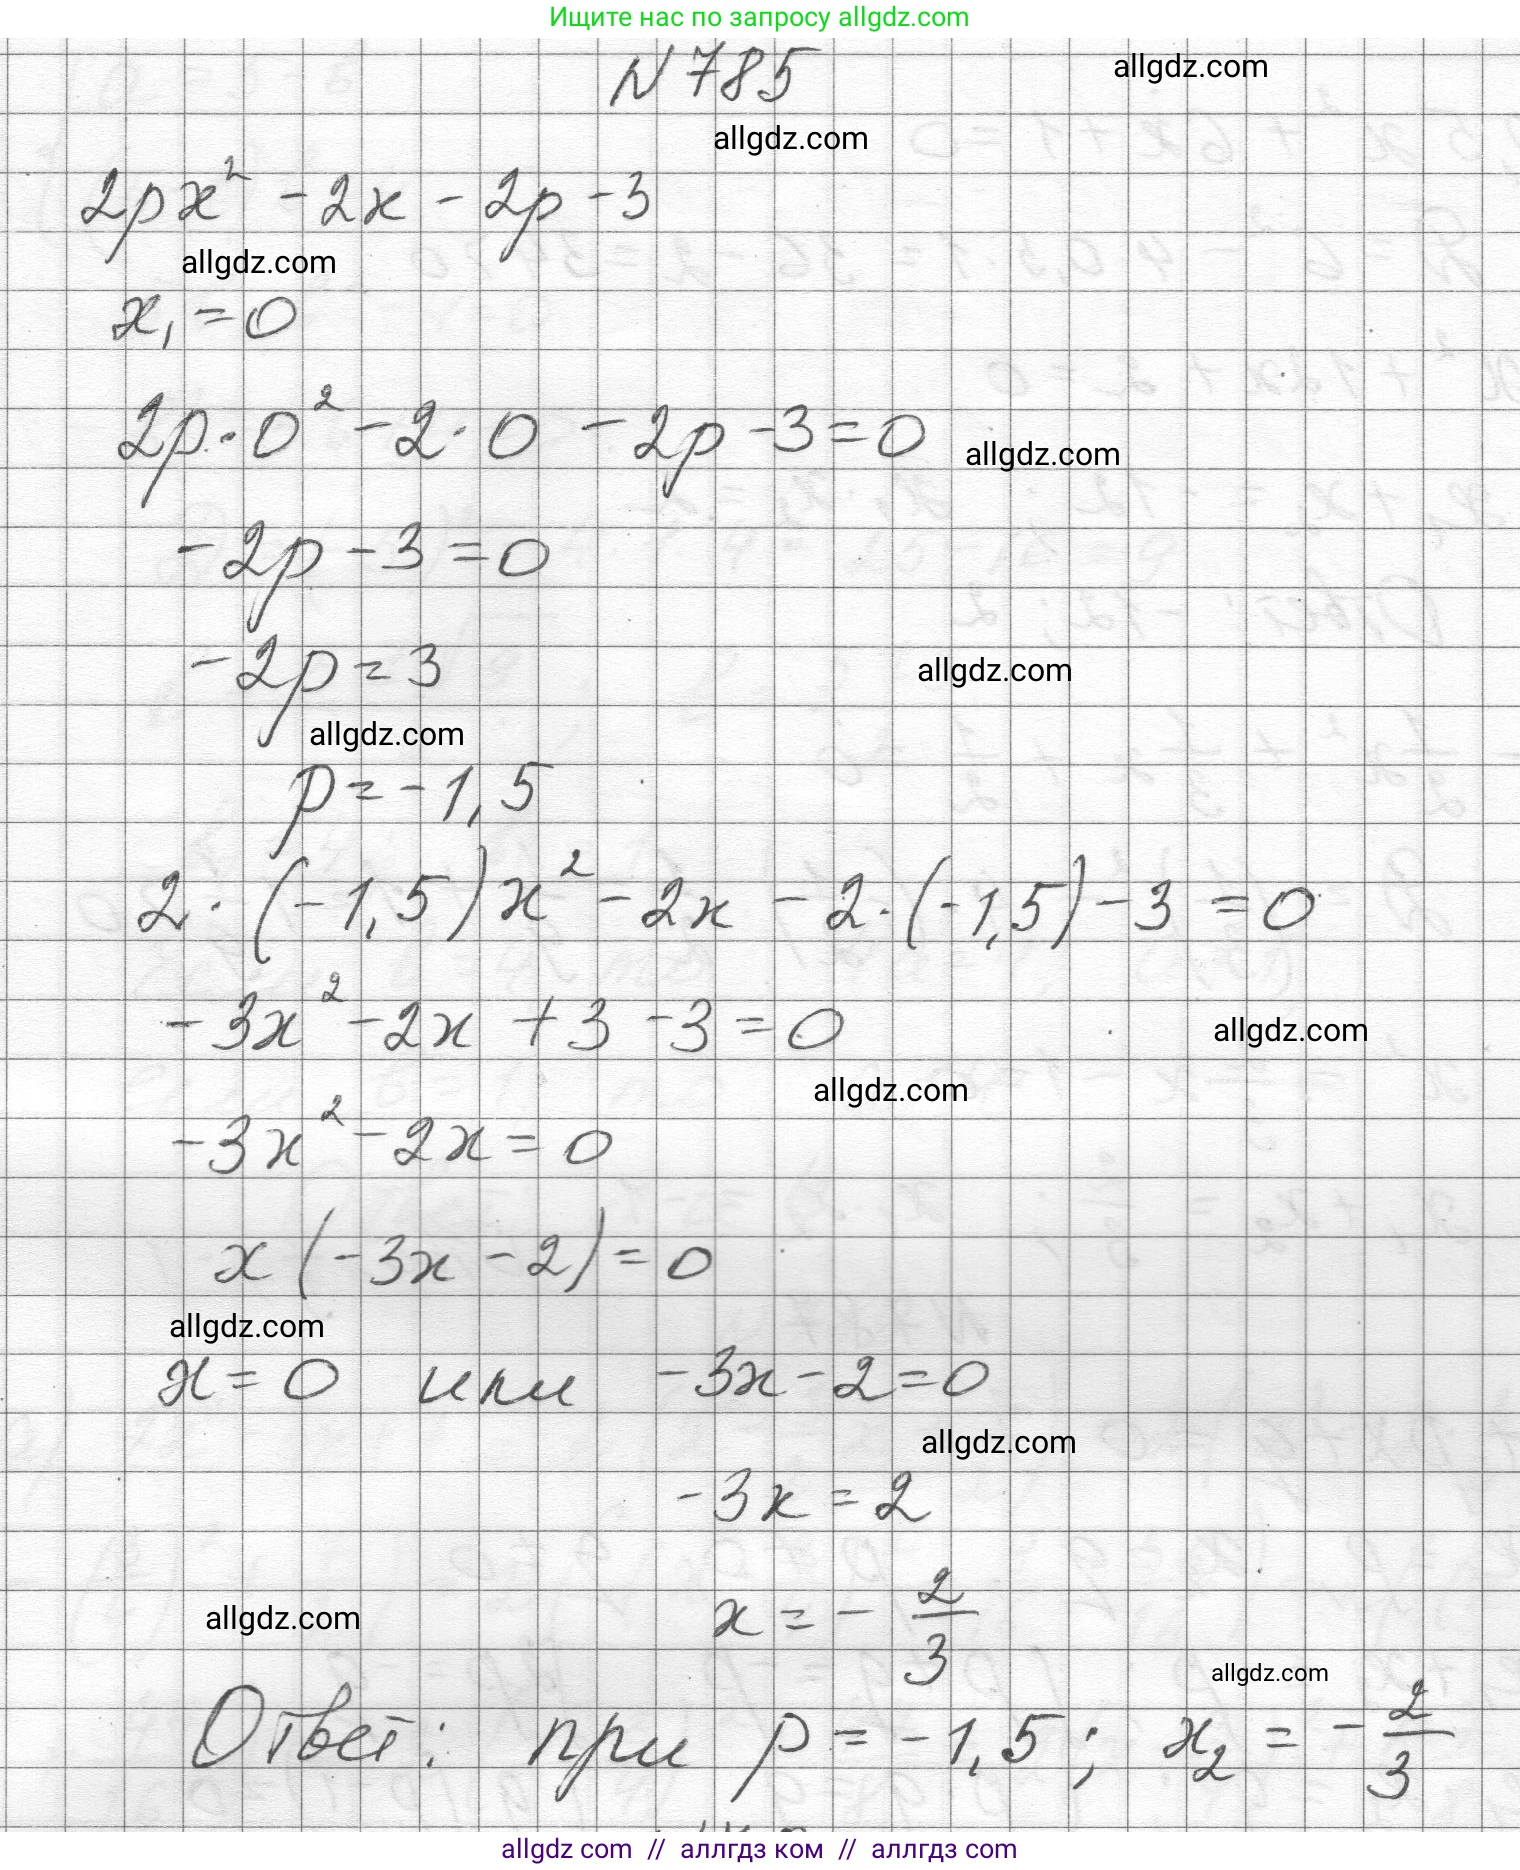 Ищите нас по запросу allgdz.com
N 785
allgdz.com
allgdz.com
2px² - 2x - 2p - 3
allgdz.com
x₁ = 0
2p · 0² - 2 · 0 - 2p - 3 = 0
allgdz.com
-2p - 3 = 0
-2p = 3
allgdz.com
allgdz.com
p = -1,5
2 · (-1,5)x² - 2x - 2 · (-1,5) - 3 = 0
-3x² - 2x + 3 - 3 = 0
allgdz.com
allgdz.com
-3x² - 2x = 0
x(-3x - 2) = 0
allgdz.com
x = 0 или -3x - 2 = 0
allgdz.com
-3x = 2
x = -2/3
allgdz.com
allgdz.com
Ответ: при p = -1,5; x₂ = -2/3
allgdz com // аллгдз ком // аллгдз com